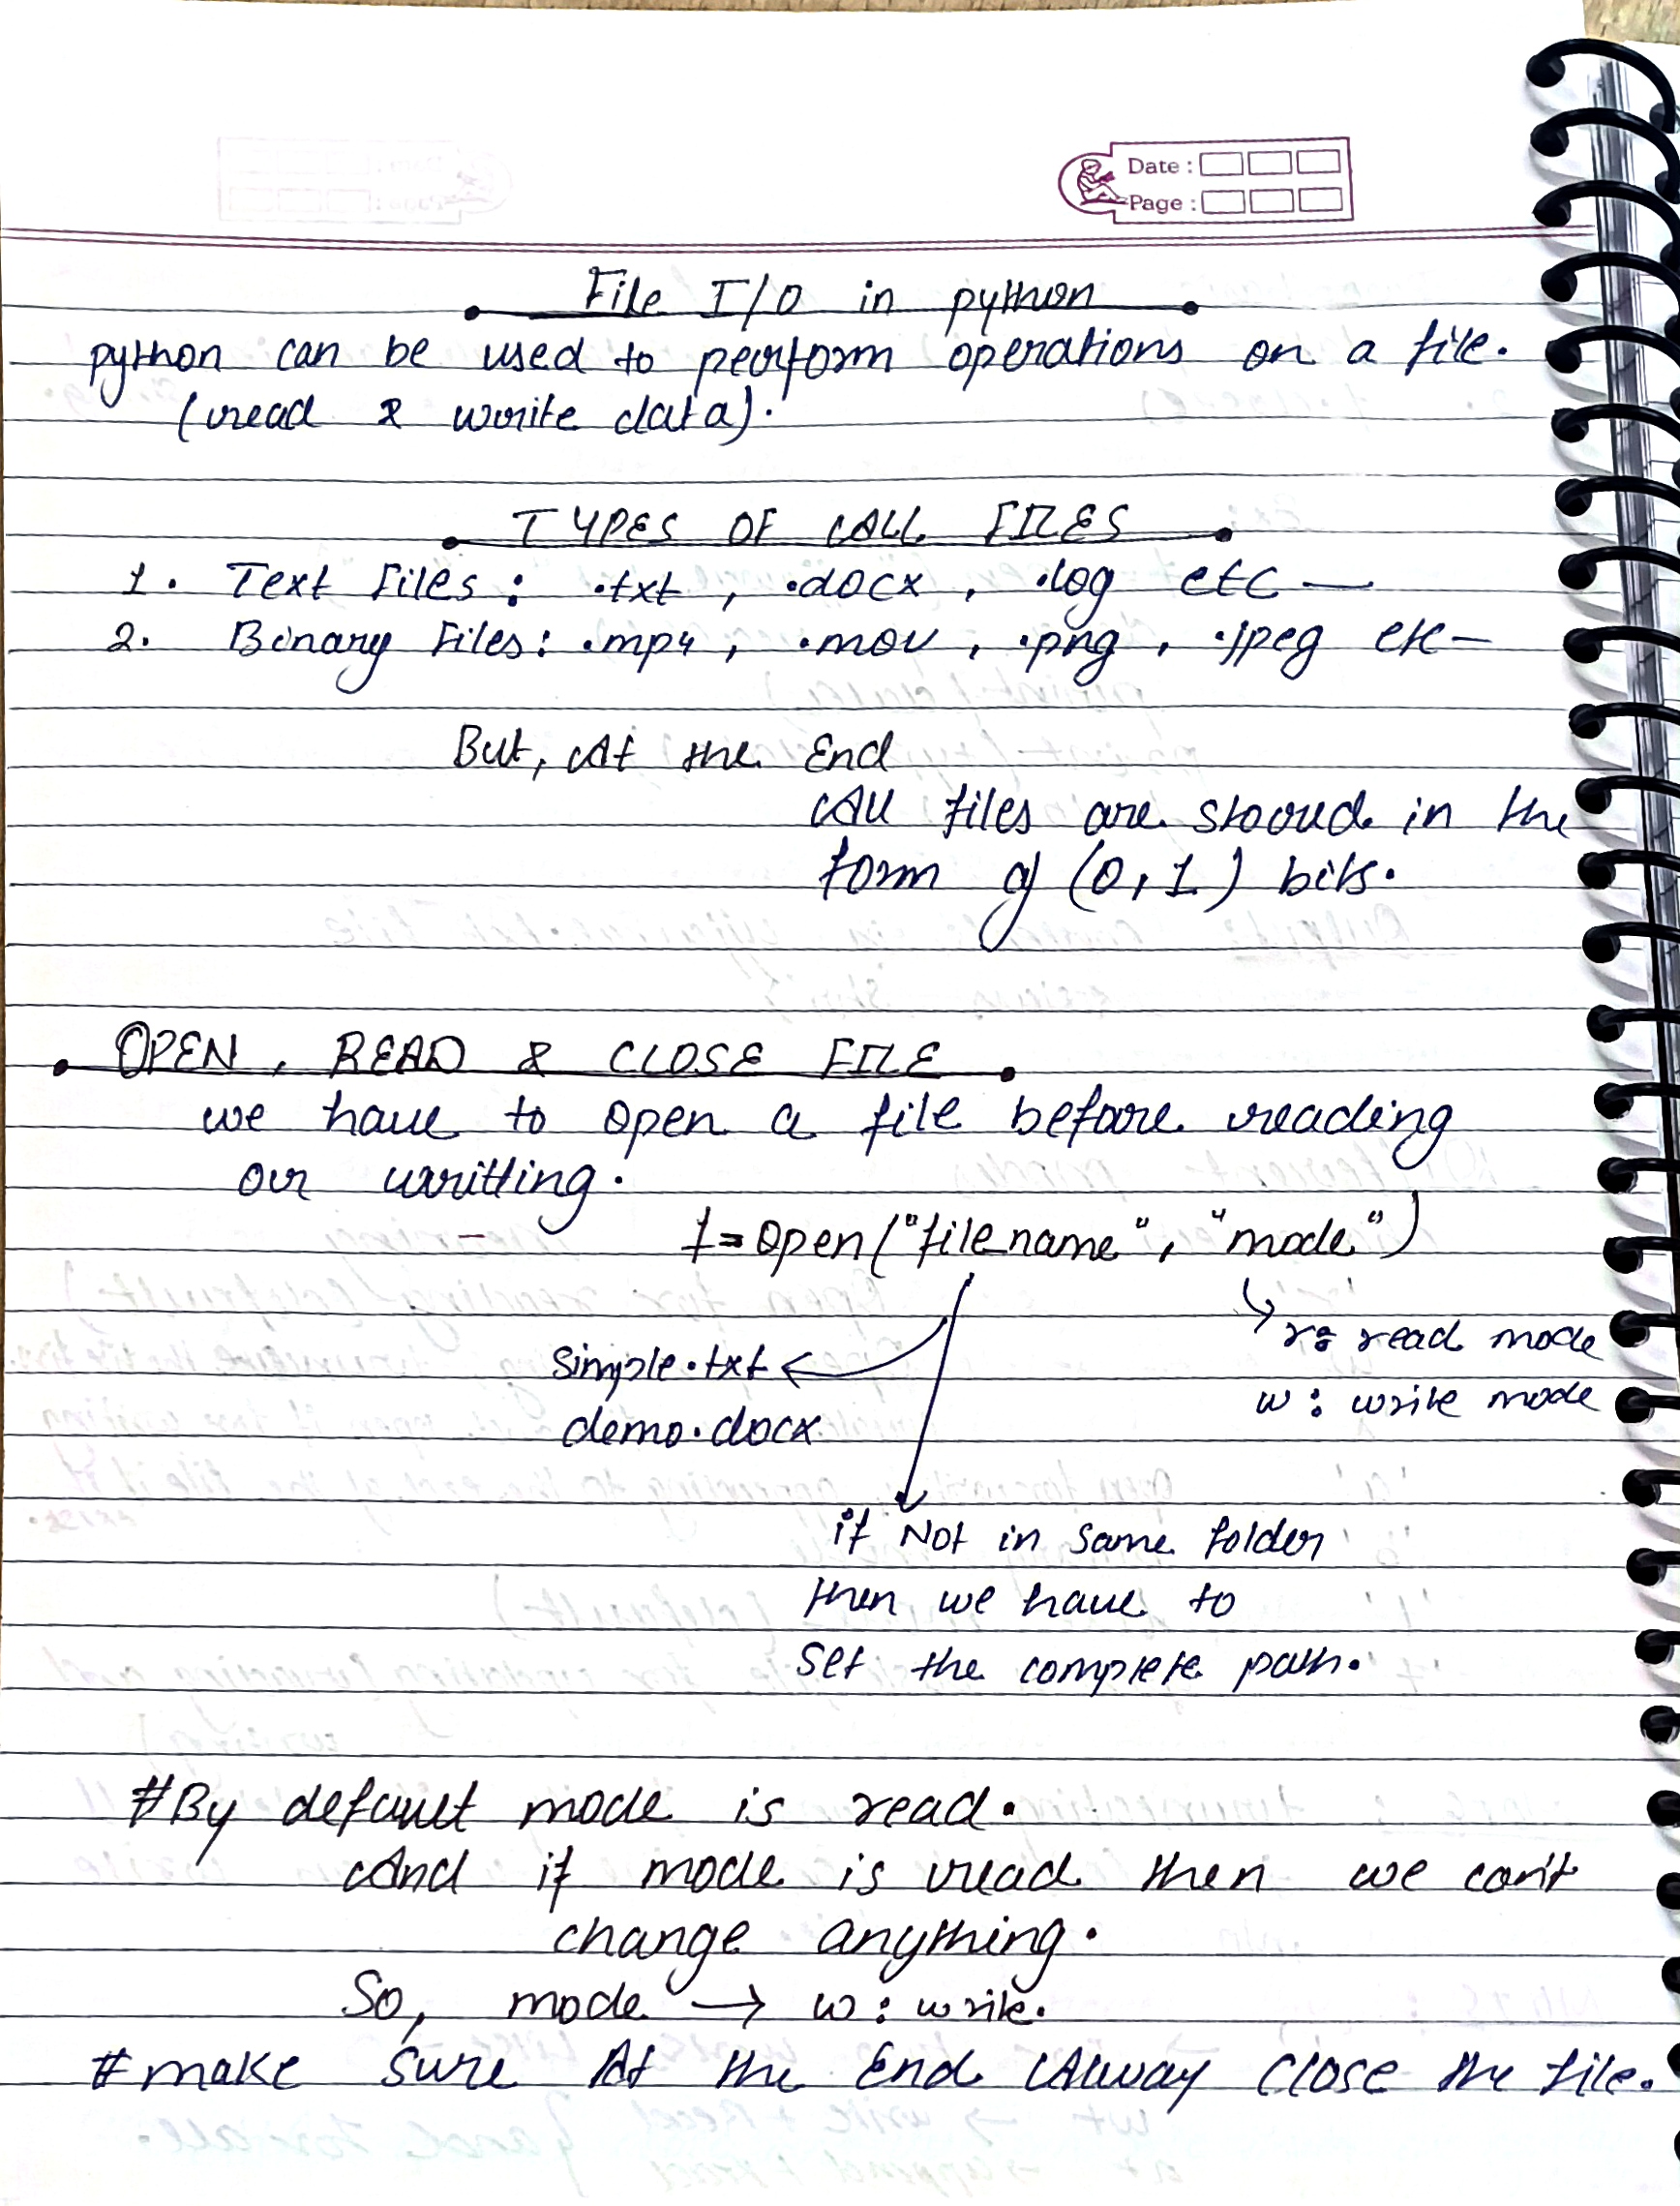 Date :
Page :
File I/O in python
python can be used to perform operations on a file.
(read & write data).
TYPES OF ALL FILES
1. Text Files : .txt , .docx , .log etc —
2. Binary Files : .mp4 , .mov , .png , .jpeg etc —
But, At the End
All files are stored in the
form of (0,1) bits.
OPEN, READ & CLOSE FILE
we have to open a file before reading
or writting.
f = open("file name", "mode")
r : read mode
simple.txt
w : write mode
demo.docx
if Not in same folder
then we have to
set the complete path.
#By default mode is read.
And if mode is read then we can't
change anything.
So, mode → w : write.
#make sure At the End Alway close the file.